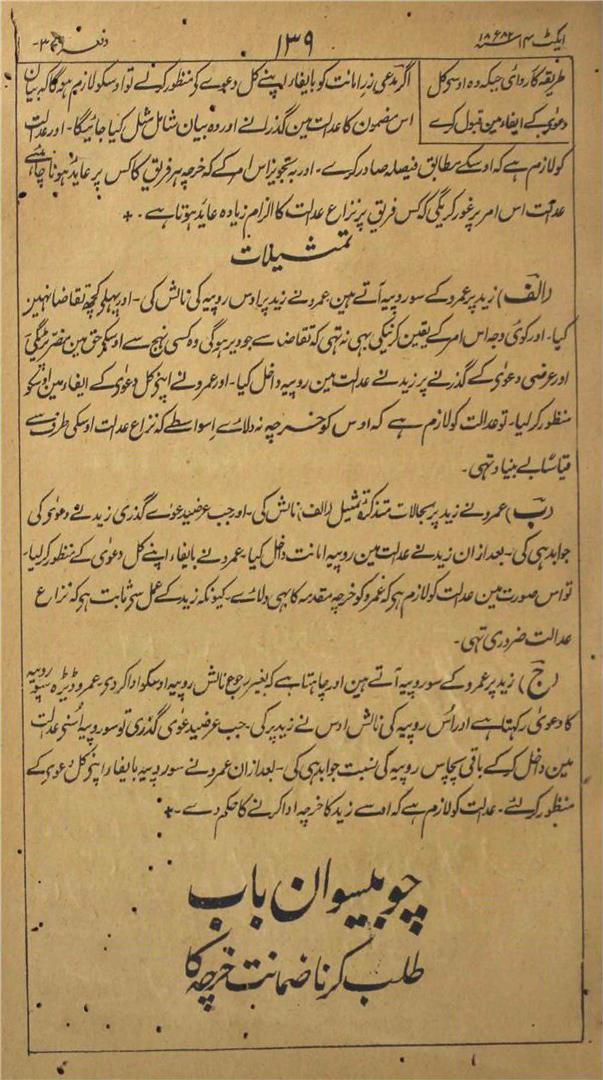 ایکٹ ۱۴ سنہ ۱۸۸۲ء
۱۳۹
دفعہ
طریقہ کارروائی جبکہ وہ اوسی کل
دعوٰی کے ایفاء مین قبول کرے
اگر مدعی زر امانت کو بایفاء اپنے کل دعوے کی منظور کرے تو اوسکو لازم ہوگا کہ بیان
اس مضمون کا عدالت مین گذرانے اور وہ بیان شامل مثل کیا جائیگا - اور عدالت
کو لازم ہے کہ اوسکے مطابق فیصلہ صادر کرے - اور بہ تجویز اس امر کے کہ خرچہ ہر فریق کا کس پر عاید ہونا چاہئے
عدالت اس امر پر غور کریگی کہ کس فریق پر نزاع عدالت کا الزام زیادہ عاید ہوتا ہے - +
تمثیلات
(الف) زید پر عمرو کے سو روپیہ آتے ہین عمرو نے زید پر اوس روپیہ کی نالش کی - اور پہلے کچھ تقاضا نہین
کیا - اور کوئی وجہ اس امر کے یقین کرنیکی بہی نہ تہی کہ تقاضا سے جو دیر ہوگی وہ کسی نہج سے اوسکے حق مین مضر ہوگی
اور عرضی دعوٰی کے گذرنے پر زید نے عدالت مین روپیہ داخل کیا - اور عمرو نے اپنی کل دعوٰی کے ایفاء مین اوسکو
منظور کر لیا - تو عدالت کو لازم ہے کہ اوس کو خرچہ نہ دلائے اسواسطے کہ نزاع عدالت اوسکی طرف سے
قیاساً بے بنیاد تہی -
(ب) عمرو نے زید پر بحالات متذکرہ تمثیل (الف) نالش کی - اور جب عرضیدعوے گذری زید نے دعوٰی کی
جوابدہی کی - بعد ازان زید نے عدالت مین روپیہ امانت داخل کیا - عمرو نے بایفاء اپنے کل دعوٰی کے منظور کر لیا -
تو اس صورت مین عدالت کو لازم ہی کہ عمرو کو خرچہ مقدمہ کا بہی دلائے - کیونکہ زید کے عمل سے ثابت ہی کہ نزاع
عدالت ضروری تہی -
(ج) زید پر عمرو کے سو روپیہ آتے ہین اور چاہتا ہے کہ بغیر رجوع نالش روپیہ اوسکو ادا کر دی عمرو ڈیڑہ سو روپیہ
کا دعوٰی رکہتا ہے اور اُس روپیہ کی نالش اوس نے زید پر کی - جب عرضیدعوٰی گذری تو سو روپیہ اُسنی عدالت
مین داخل کر کے باقی پچاس روپیہ کی نسبت جوابدہی کی - بعد ازان عمرو نے سو روپیہ بایفاء اپنی کل دعوٰی کے
منظور کر لئے - عدالت کو لازم ہے کہ اوسے زید کا خرچہ ادا کرنے کا حکم دے - +
چوبیسوان باب
طلب کرنا ضمانت خرچہ کا